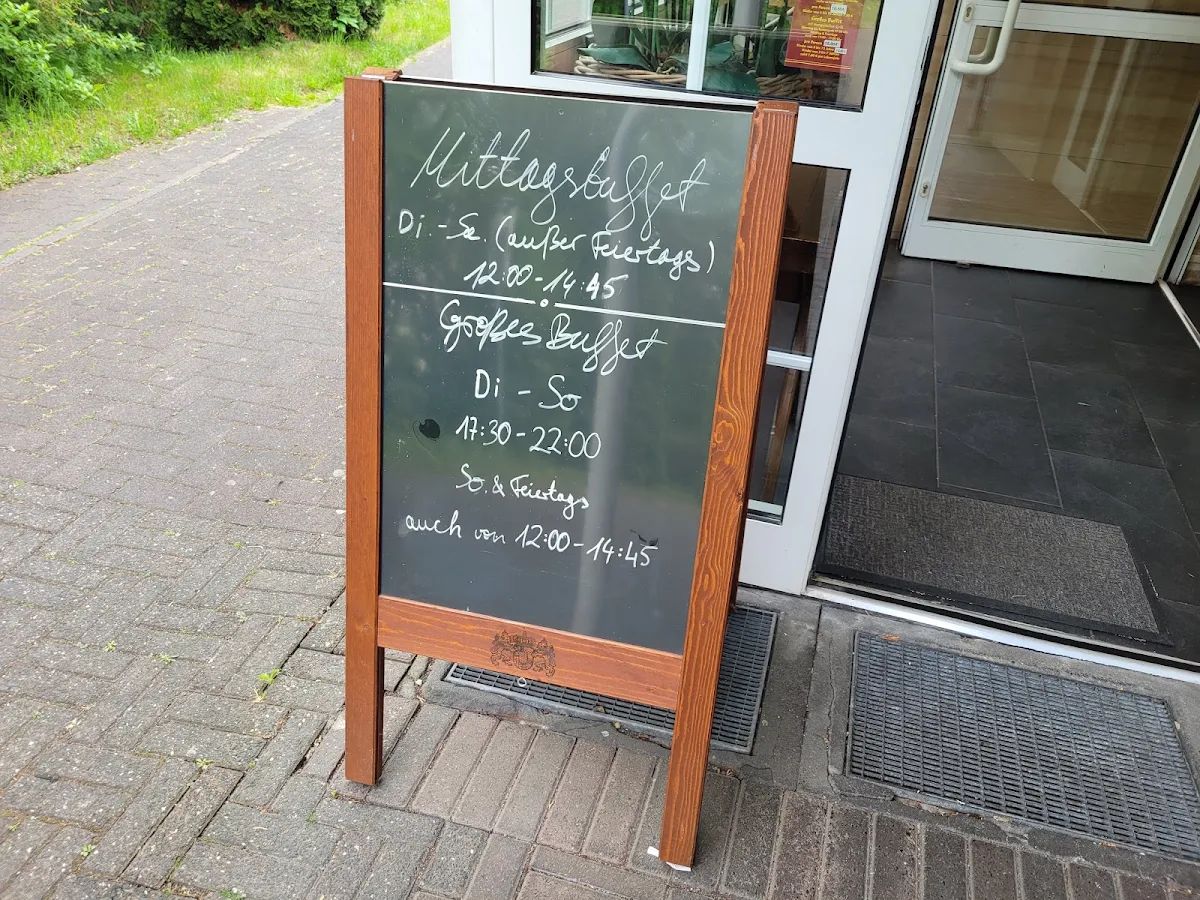 Mittagsbuffet
Di.-Sa. (außer Feiertags)
12:00-14:45
Großes Buffet
Di - So
17:30-22:00
So. & Feiertags
auch von 12:00-14:45